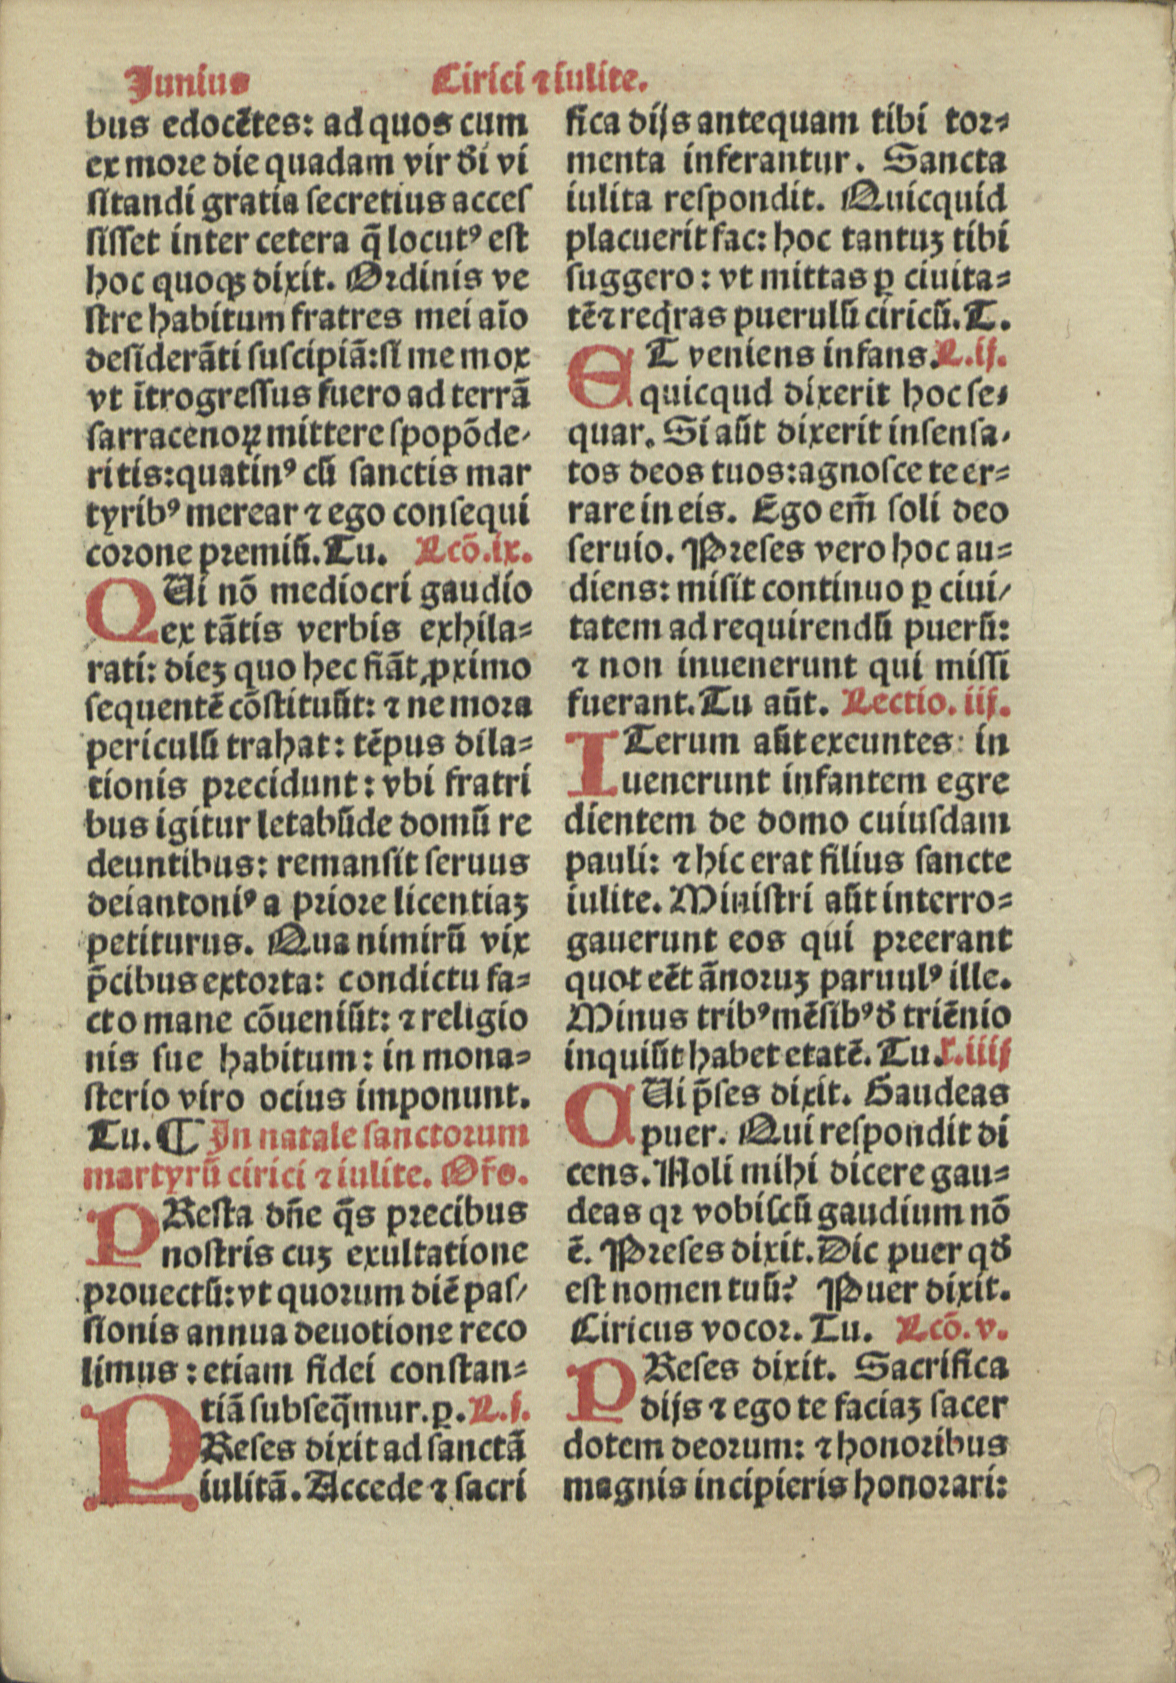 Junius Cirici ⁊ iulite.
bus edocẽtes: ad quos cum
ex more die quadam vir d̄i vi
ſitandi gratia ſecretius acceſ
ſiſſet inter cetera q̃ locutꝰ eſt
hoc quoqꝫ dixit. Ordinis ve
ſtre habitum fratres mei aīo
deſiderãti ſuſcipiã: ſi me mox
vt ĩtrogreſſus fuero ad terrã
ſarracenoꝝ mittere ſpopõde⸗
ritis: quatinꝰ cũ ſanctis mar
tyribꝰ merear ⁊ ego conſequi
corone premiũ. Tu. Lcõ. ix.
QUi nõ mediocri gaudio
ex tãtis verbis exhila⸗
rati: dieꝫ quo hec fiãt ꝓximo
ſequentẽ cõſtituũt: ⁊ ne mora
periculũ trahat: tẽpus dila⸗
tionis precidunt: vbi fratri
bus igitur letabũde domũ re
deuntibus: remanſit ſeruus
dei antoniꝰ a priore licentiaꝫ
petiturus. Qua nimirũ vix
p̃cibus extorta: condictu fa⸗
cto mane cõueniũt: ⁊ religio
nis ſue habitum: in mona⸗
ſterio viro ocius imponunt.
Tu. ¶ In natale ſanctorum
martyrũ cirici ⁊ iulite. Or̃o.
PReſta dñe q̃s precibus
noſtris cuꝫ exultatione
prouectũ: vt quorum diẽ paſ⸗
ſionis annua deuotione reco
limus: etiam fidei conſtan⸗
tiã ſubſeq̃mur. ꝑ. L. j.
PReſes dixit ad ſanctã
iulitã. Accede ⁊ ſacri
fica dijs antequam tibi tor⸗
menta inferantur. Sancta
iulita reſpondit. Quicquid
placuerit fac: hoc tantuꝫ tibi
ſuggero: vt mittas ꝑ ciuita⸗
tẽ ⁊ reqͥras puerulũ ciricũ. T.
ET veniens infans. L. ij.
quicqud dixerit hoc ſe⸗
quar. Si aũt dixerit inſenſa⸗
tos deos tuos: agnoſce te er⸗
rare in eis. Ego em̃ ſoli deo
ſeruio. Preſes vero hoc au⸗
diens: miſit continuo ꝑ ciui⸗
tatem ad requirendũ puerũ:
⁊ non inuenerunt qui miſſi
fuerant. Tu aũt. Lectio. iij.
ITerum aũt exeuntes in
uenerunt infantem egre
dientem de domo cuiuſdam
pauli: ⁊ hic erat filius ſancte
iulite. Miniſtri aũt interro⸗
gauerunt eos qui preerant
quot eẽt ãnoruꝫ paruulꝰ ille.
Minus tribꝰ mẽſibꝰ d̄ triẽnio
inquiũt habet etatẽ. Tu. L. iiij
CUi p̃ſes dixit. Gaudeas
puer. Qui reſpondit di
cens. Noli mihi dicere gau⸗
deas qꝛ vobiſcũ gaudium nõ
ẽ. Preſes dixit. Dic puer qd̄
eſt nomen tuũ? Puer dixit.
Ciricus vocor. Tu. Lcõ. v.
PReſes dixit. Sacrifica
dijs ⁊ ego te faciaꝫ ſacer
dotem deorum: ⁊ honoribus
magnis incipieris honorari: